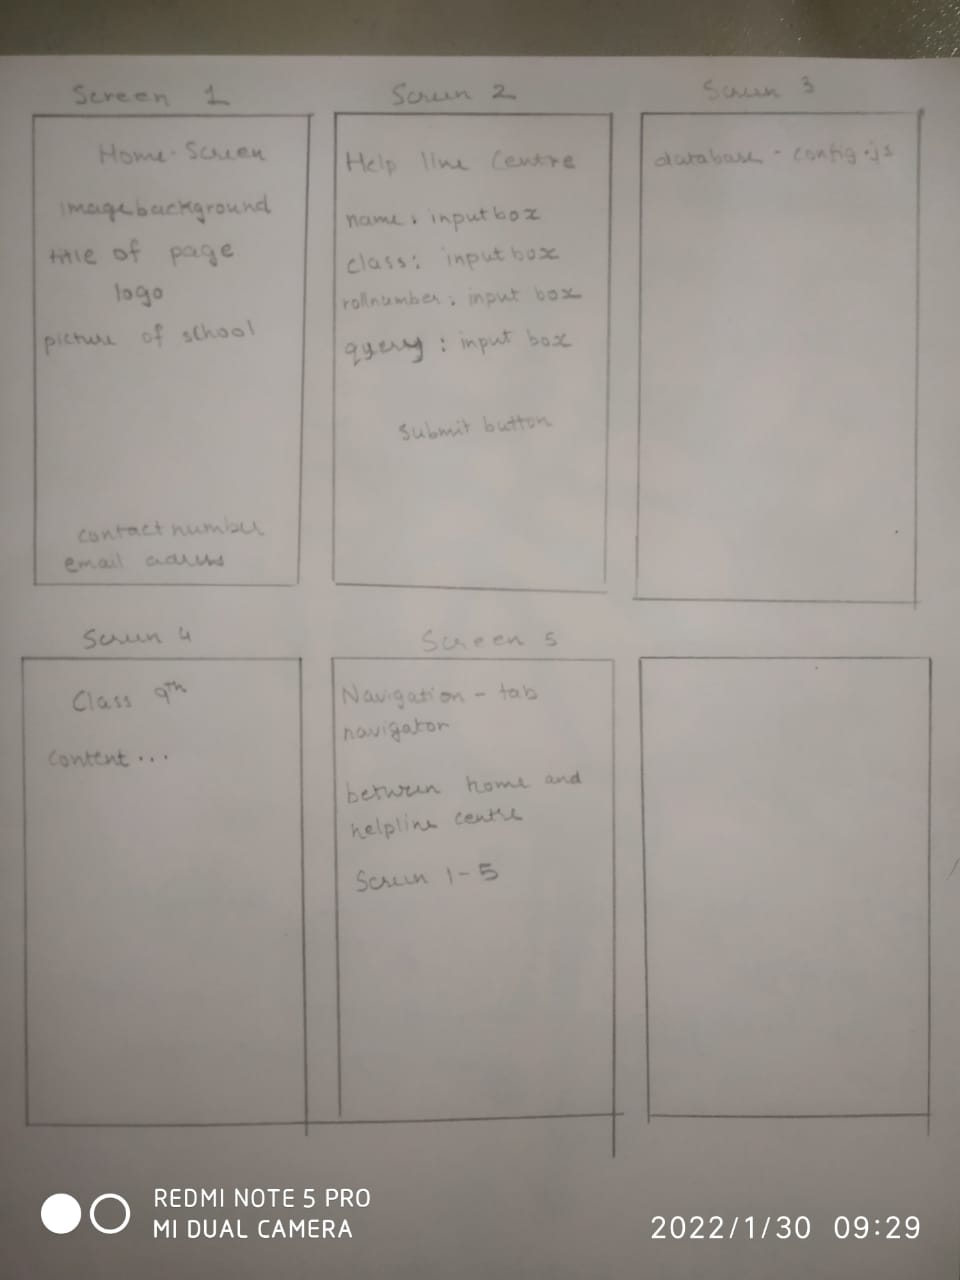 Screen 1
Home-Screen
imagebackground
title of page
logo
picture of school
contact number
email adress
Screen 2
Help line Centre
name: inputbox
class: inputbox
rollnumber: input box
query: input box
submit button
Screen 3
database - config.js
Screen 4
Class 9th
content...
Screen 5
Navigation - tab
navigator
between home and
helpline centre
Screen 1-5
REDMI NOTE 5 PRO
MI DUAL CAMERA
2022/1/30 09:29